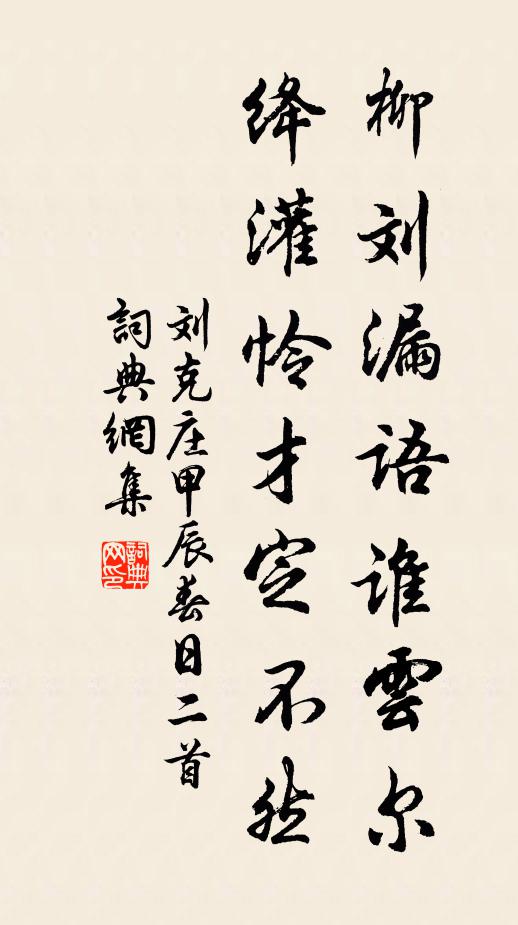 柳刘漏语谁雲尔
绛灌怜才定不然
刘克庄甲辰春日二首
詞典網集
詞典网印